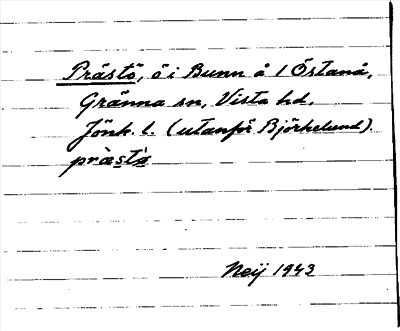 Prästö, ö i Bunn å 1 Östanå,
Gränna sn, Vista hd,
Jönk. l. (utanför Björkelund).
prästö
Neij 1943